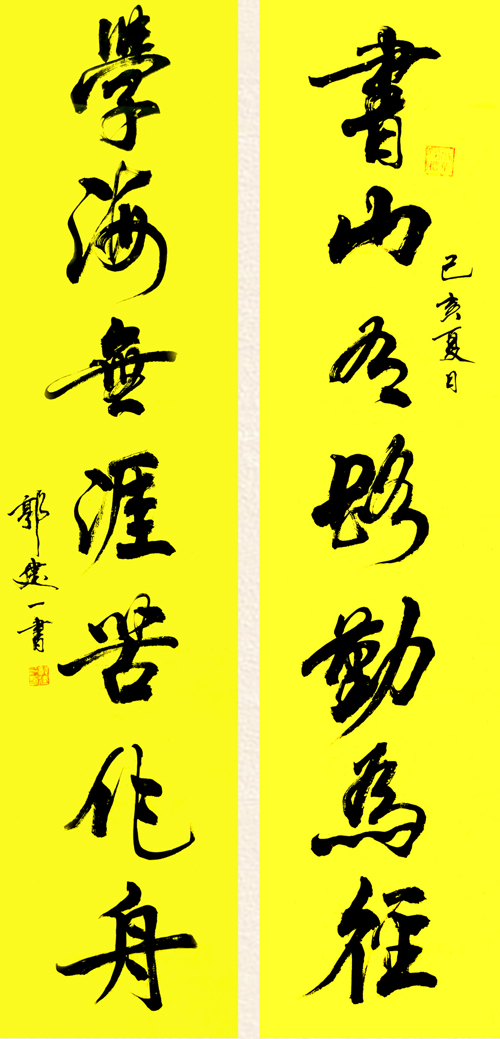 書山有路勤為徑
己亥夏日
學海無涯苦作舟
郭建一書